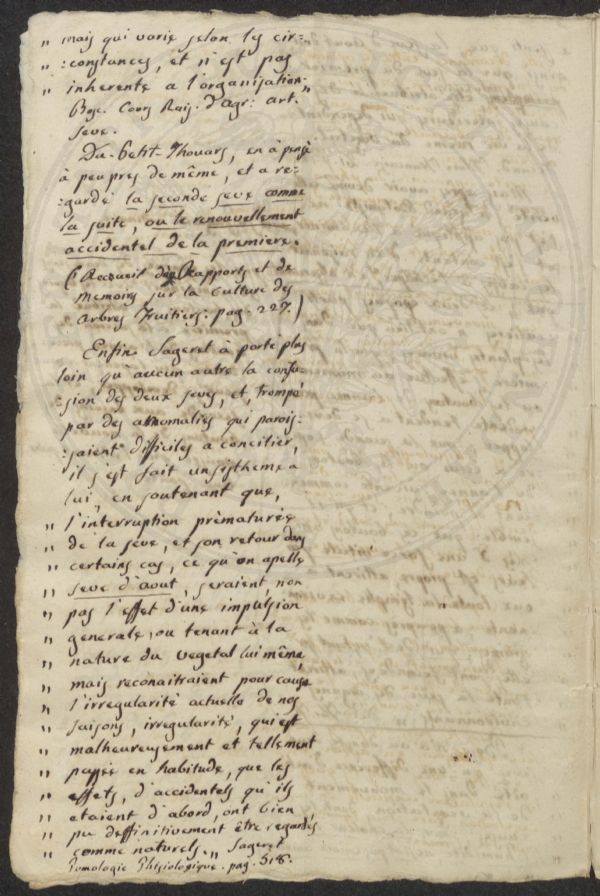 „ mais qui varie selon les cir=
„ =constances, et n'est pas
„ inherente a l'organisation. „
Bosc. Cours Rais. d'agr: art.
seve.
Du-Petit-Thouars, en à pensé
à peu pres de même, et a re=
=gardé la seconde seve comme
la suite, ou le renouvellement
accidentel de la premiere.
(Recueil des Rapports et de
memoires sur la culture des
arbres Fruitiers: pag. 227.)
Enfin Sageret à porté plus
loin qu'aucun autre la confu=
=sion des deux seves, et, trompé
par des anomalies qui parois=
=saient difficiles a concilier,
il s'est fait un sistheme a
lui, en soutenant que,
„ l'interruption prèmaturée
„ de la seve, et son retour dans
„ certains cas, ce qu'on apelle
„ seve d'aout, seraient, non
„ pas l'effet d'une impulsion
„ generale, ou tenant à la
„ nature du vegetal lui même,
„ mais reconaitraient pour cause
„ l'irregularité actuelle de nos
„ saisons, irregularité, qui est
„ malheureusement et tellement
„ passée en habitude, que les
„ effets, d'accidentels qu'ils
„ etaient d'abord, ont bien
„ pu deffinitivement être regardés
„ comme naturels. „ Sageret
Pomologie Phisiologique. pag. 518.